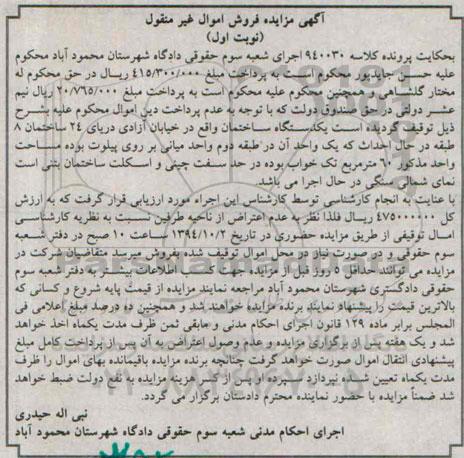 آگهی مزایده فروش اموال غیر منقول
(نوبت اول)
بحکایت پرونده کلاسه ۹۴۰۰۳۰ اجرای شعبه سوم حقوقی دادگاه شهرستان محمود آباد محکوم
علیه حسن جاویدپور محکوم است به پرداخت مبلغ ۴۱۵/۳۰۰/۰۰۰ ریال در حق محکوم له
مختار گلشاهی و همچنین محکوم علیه محکوم است به پرداخت مبلغ ۲۰/۷۶۵/۰۰۰ ریال نیم
عشر دولتی در حق صندوق دولت که با توجه به عدم پرداخت دین اموال محکوم علیه بشرح
ذیل توقیف گردیده است یکدستگاه ساختمان واقع در خیابان آزادی دریای ۲۴ ساختمان ۸
طبقه در حال احداث که یک واحد آن در طبقه دوم واحد میانی بر روی پیلوت بوده مساحت
واحد مذکور ۶۰ مترمربع تک خواب بوده در حد سفت چینی و اسکلت ساختمان بتنی است
نمای شمالی سنگی در حال اجرا می باشد.
با عنایت به انجام کارشناسی توسط کارشناس این اجراء مورد ارزیابی قرار گرفت که به ارزش
کل ۴۷۵۰۰۰۰۰۰ ریال فلذا نظر به عدم اعتراض از ناحیه طرفین نسبت به نظریه کارشناسی
امال توقیفی از طریق مزایده حضوری در تاریخ ۱۳۹۴/۱۰/۲ ساعت ۱۰ صبح در دفتر شعبه
سوم حقوقی و در صورت نیاز در محل اموال توقیف شده بفروش میرسد متقاضیان شرکت در
مزایده می توانند حداقل ۵ روز قبل از مزایده جهت کسب اطلاعات بیشتر به دفتر شعبه سوم
حقوقی دادگستری شهرستان محمود آباد مراجعه نمایند مزایده از قیمت پایه شروع و کسانی که
بالاترین قیمت را پیشنهاد نمایند برنده مزایده خواهند شد و همچنین ده درصد مبلغ اعلامی فی
المجلس برابر ماده ۱۲۹ قانون اجرای احکام مدنی و مابقی ثمن ظرف مدت یکماه اخذ خواهد
شد و یک هفته پس از برگزاری مزایده و عدم وصول اعتراض به آن پس از پرداخت کامل مبلغ
پیشنهادی انتقال اموال صورت خواهد گرفت چنانچه برنده مزایده باقیمانده بهای اموال را ظرف
مدت یکماه تعیین شده نپردازد سپرده او پس از کسر هزینه مزایده به نفع دولت ضبط خواهد
شد ضمناً مزایده با حضور نماینده محترم دادستان برگزار می گردد.
نبی اله حیدری
اجرای احکام مدنی شعبه سوم حقوقی دادگاه شهرستان محمود آباد